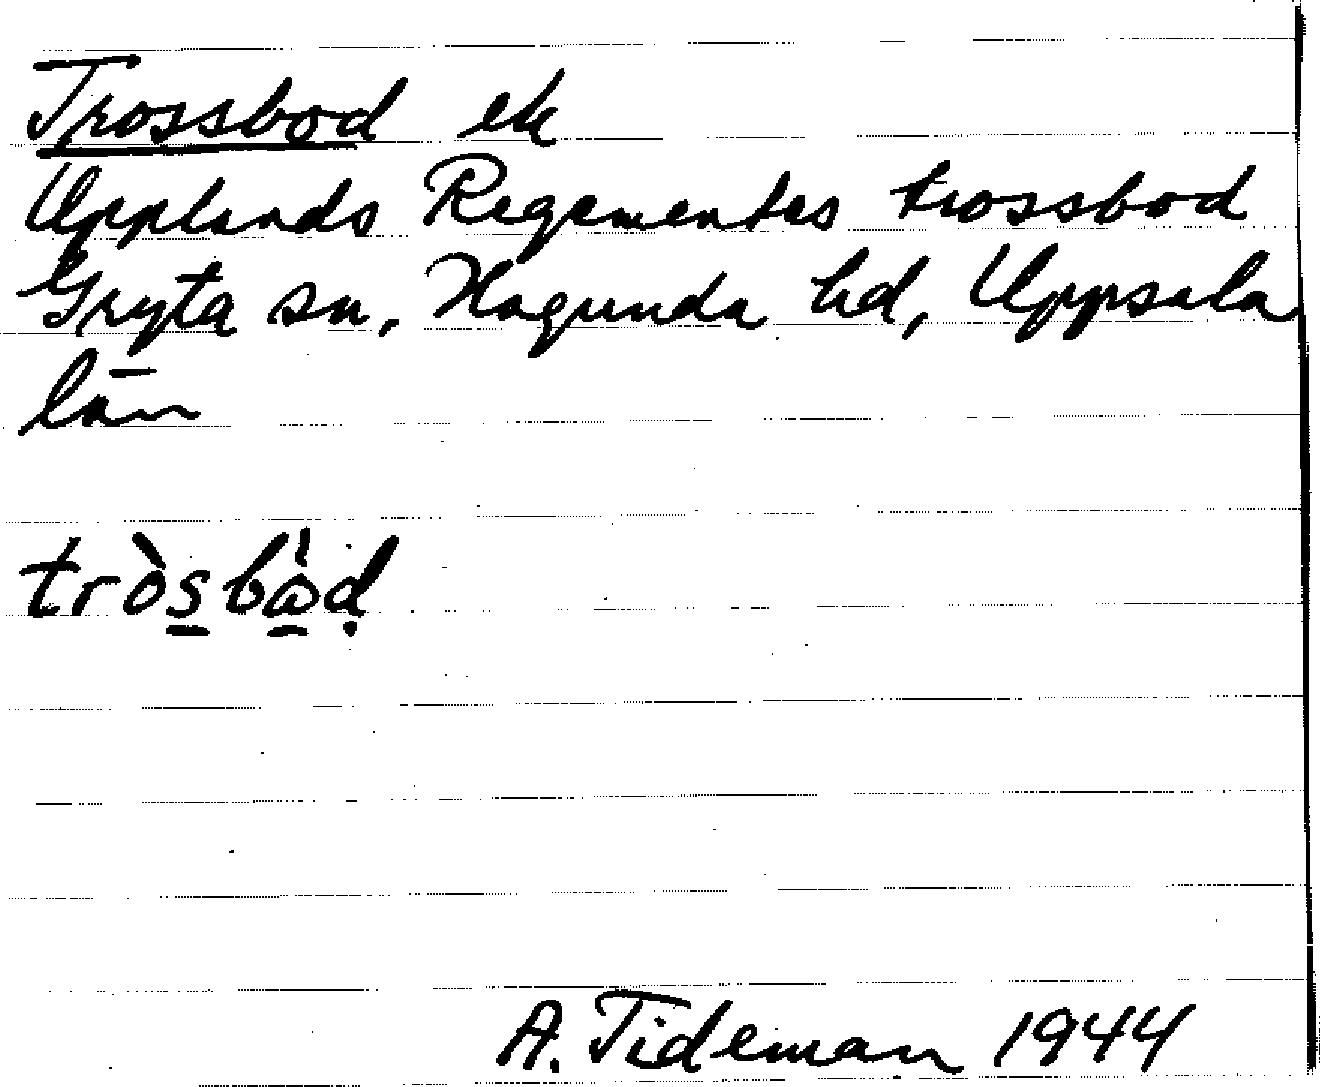 Trossbod ek
Upplands Regementes trossbod
Gryta sn, Hagunda hd, Uppsala
län
tròs̲bà̲ḍ
A. Tideman 1944